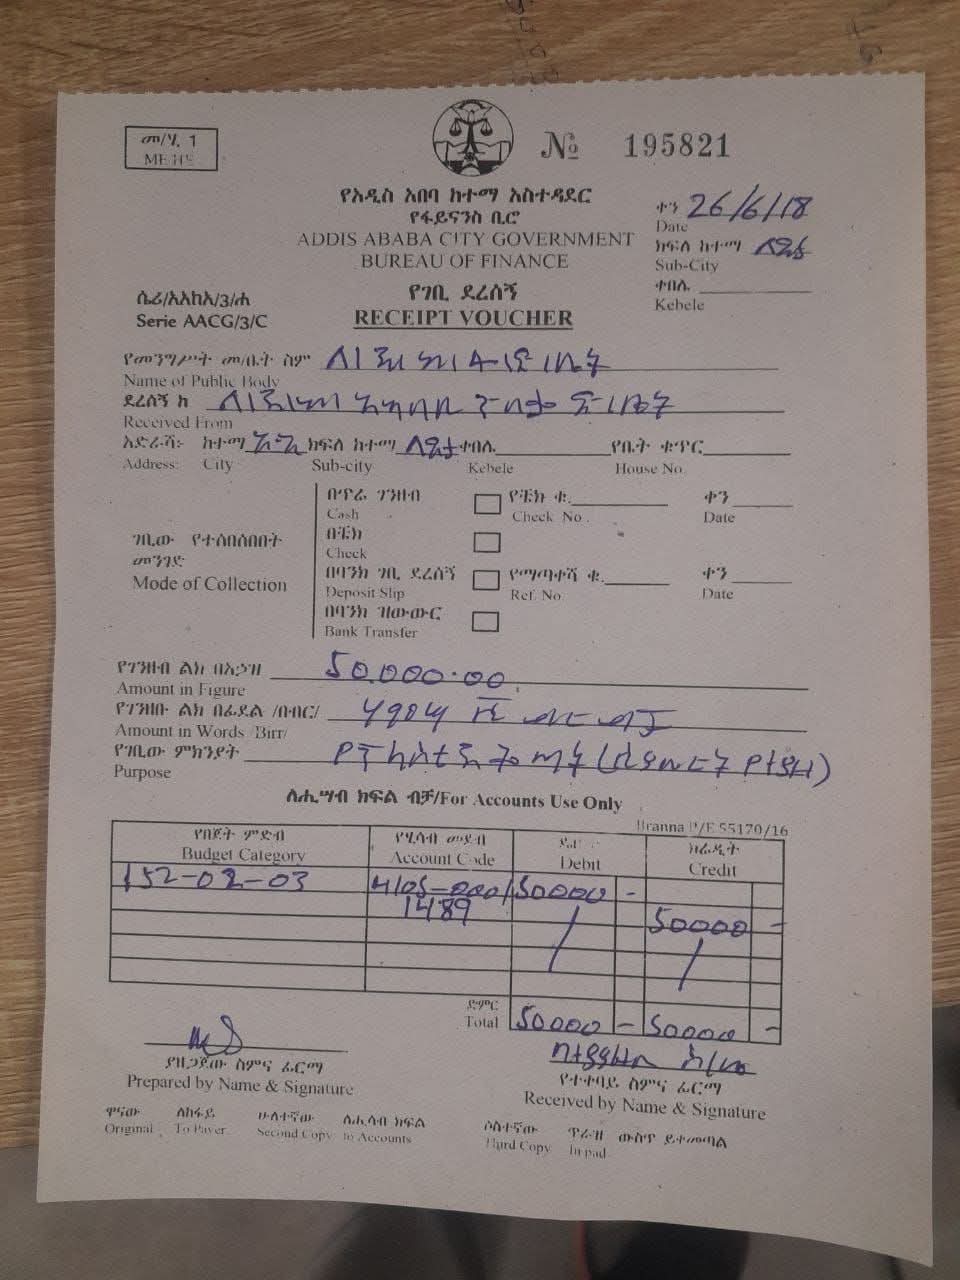 መ/ሂ 1
ME/HE
№ 195821
የአዲስ አበባ ከተማ አስተዳደር
የፋይናንስ ቢሮ
ADDIS ABABA CITY GOVERNMENT
BUREAU OF FINANCE
ቀን 26/6/18
Date
ክፍለ ከተማ
Sub-City
ቀበሌ
Kebele
ሴሪ/አአከአ/3/ሐ
Serie AACG/3/C
የገቢ ደረሰኝ
RECEIPT VOUCHER
የመንግሥት መ/ቤት ስም
Name of Public Body
ደረሰኝ ከ
Received From
አድራሻ: ከተማ አ.አ ክፍለ ከተማ ቀበሌ የቤት ቁጥር
Address: City Sub-city Kebele House No.
በጥሬ ገንዘብ የቼክ ቁ. ቀን
Cash Check No. Date
በቼክ
Check
ገቢው የተሰበሰበበት መንገድ
Mode of Collection
በባንክ ገቢ ደረሰኝ የማጣቀሻ ቁ. ቀን
Deposit Slip Ref. No Date
በባንክ ዝውውር
Bank Transfer
የገንዘብ ልክ በአኃዝ 50,000.00
Amount in Figure
የገንዘቡ ልክ በፊደል /በብር/ ሃምሳ ሺ
Amount in Words /Birr/
የገቢው ምክንያት
Purpose
ለሒሣብ ክፍል ብቻ/For Accounts Use Only
Branna P/E 55170/16
የበጀት ምድብ የሂሳብ መደብ ክሬዲት
Budget Category Account Code Debit Credit
152-02-03 50000 -
1489 50000 -
ድምር
Total 50000 - 50000 -
ያዘጋጀው ስምና ፊርማ
Prepared by Name & Signature
የተቀባይ ስምና ፊርማ
Received by Name & Signature
ዋናው ለከፋይ ሁለተኛው ለሒሳብ ክፍል ሶስተኛው ጥራዝ ውስጥ ይቀመጣል
Original To Payer Second Copy to Accounts Third Copy In pad